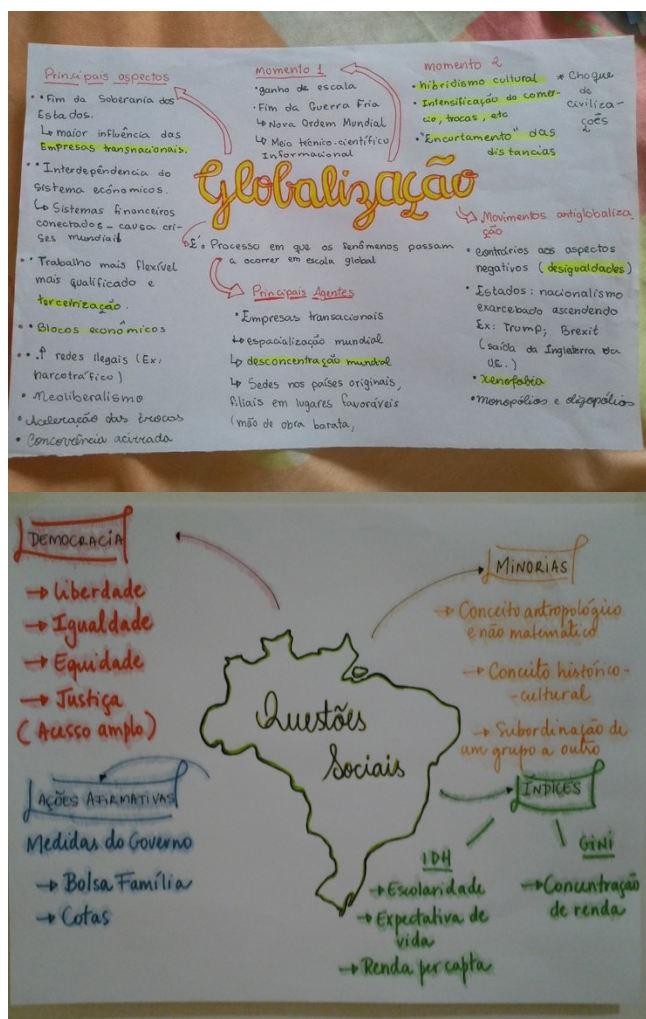 Principais aspectos
• • Fim da Soberania dos
Estados.
↳ maior influência das
Empresas transnacionais.
• • Interdependência do
sistema econômicos.
↳ Sistemas financeiros
conectados - causa cri-
ses mundiais
• • Trabalho mais flexível
mais qualificado e
terceirização.
• • Blocos econômicos
• • • ↑ redes ilegais (Ex:
narcotráfico)
• Neoliberalismo
• Aceleração das trocas
• Concorrência acirrada
Momento 1
• ganho de escala
• Fim da Guerra Fria
↳ Nova Ordem Mundial
↳ Meio técnico-científico
Informacional
momento 2
• hibridismo cultural
• Intensificação do comér-
cio, trocas, etc
• "Encurtamento" das
distancias
* Choque
de
civiliza-
ções
Globalização
É: Processo em que os fenômenos passam
a ocorrer em escala global
Principais Agentes
• Empresas transacionais
↳ espacialização mundial
↳ desconcentração mundial
↳ Sedes nos países originais,
filiais em lugares favoráveis
(mão de obra barata,
Movimentos antiglobaliza-
ção
• contrários aos aspectos
negativos (desigualdades)
• Estados: nacionalismo
exarcebado ascendendo
Ex: Trump; Brexit
(saída da Inglaterra da
UE.)
• xenofobia
• monopólios e oligopólios
DEMOCRACIA
→ Liberdade
→ Igualdade
→ Equidade
→ Justiça
(Acesso amplo)
AÇÕES AFIRMATIVAS
Medidas do Governo
→ Bolsa Família
→ Cotas
Questões
Sociais
MINORIAS
→ Conceito antropológico
e não matemático
→ Conceito histórico-
-cultural
→ Subordinação de
um grupo a outro
ÍNDICES
IDH
→ Escolaridade
→ Expectativa de
vida
→ Renda per capta
GINI
→ Concentração
de renda